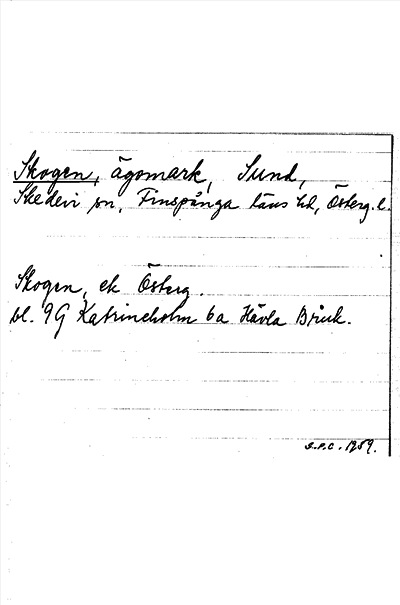 Skogen, ägomark, Sund,
Skedevi sn, Finspånga läns hd, Österg. l.
Skogen, ek Österg.
bl. 9G Katrineholm 6a Hävla Bruk.
S.P.C. 1959.